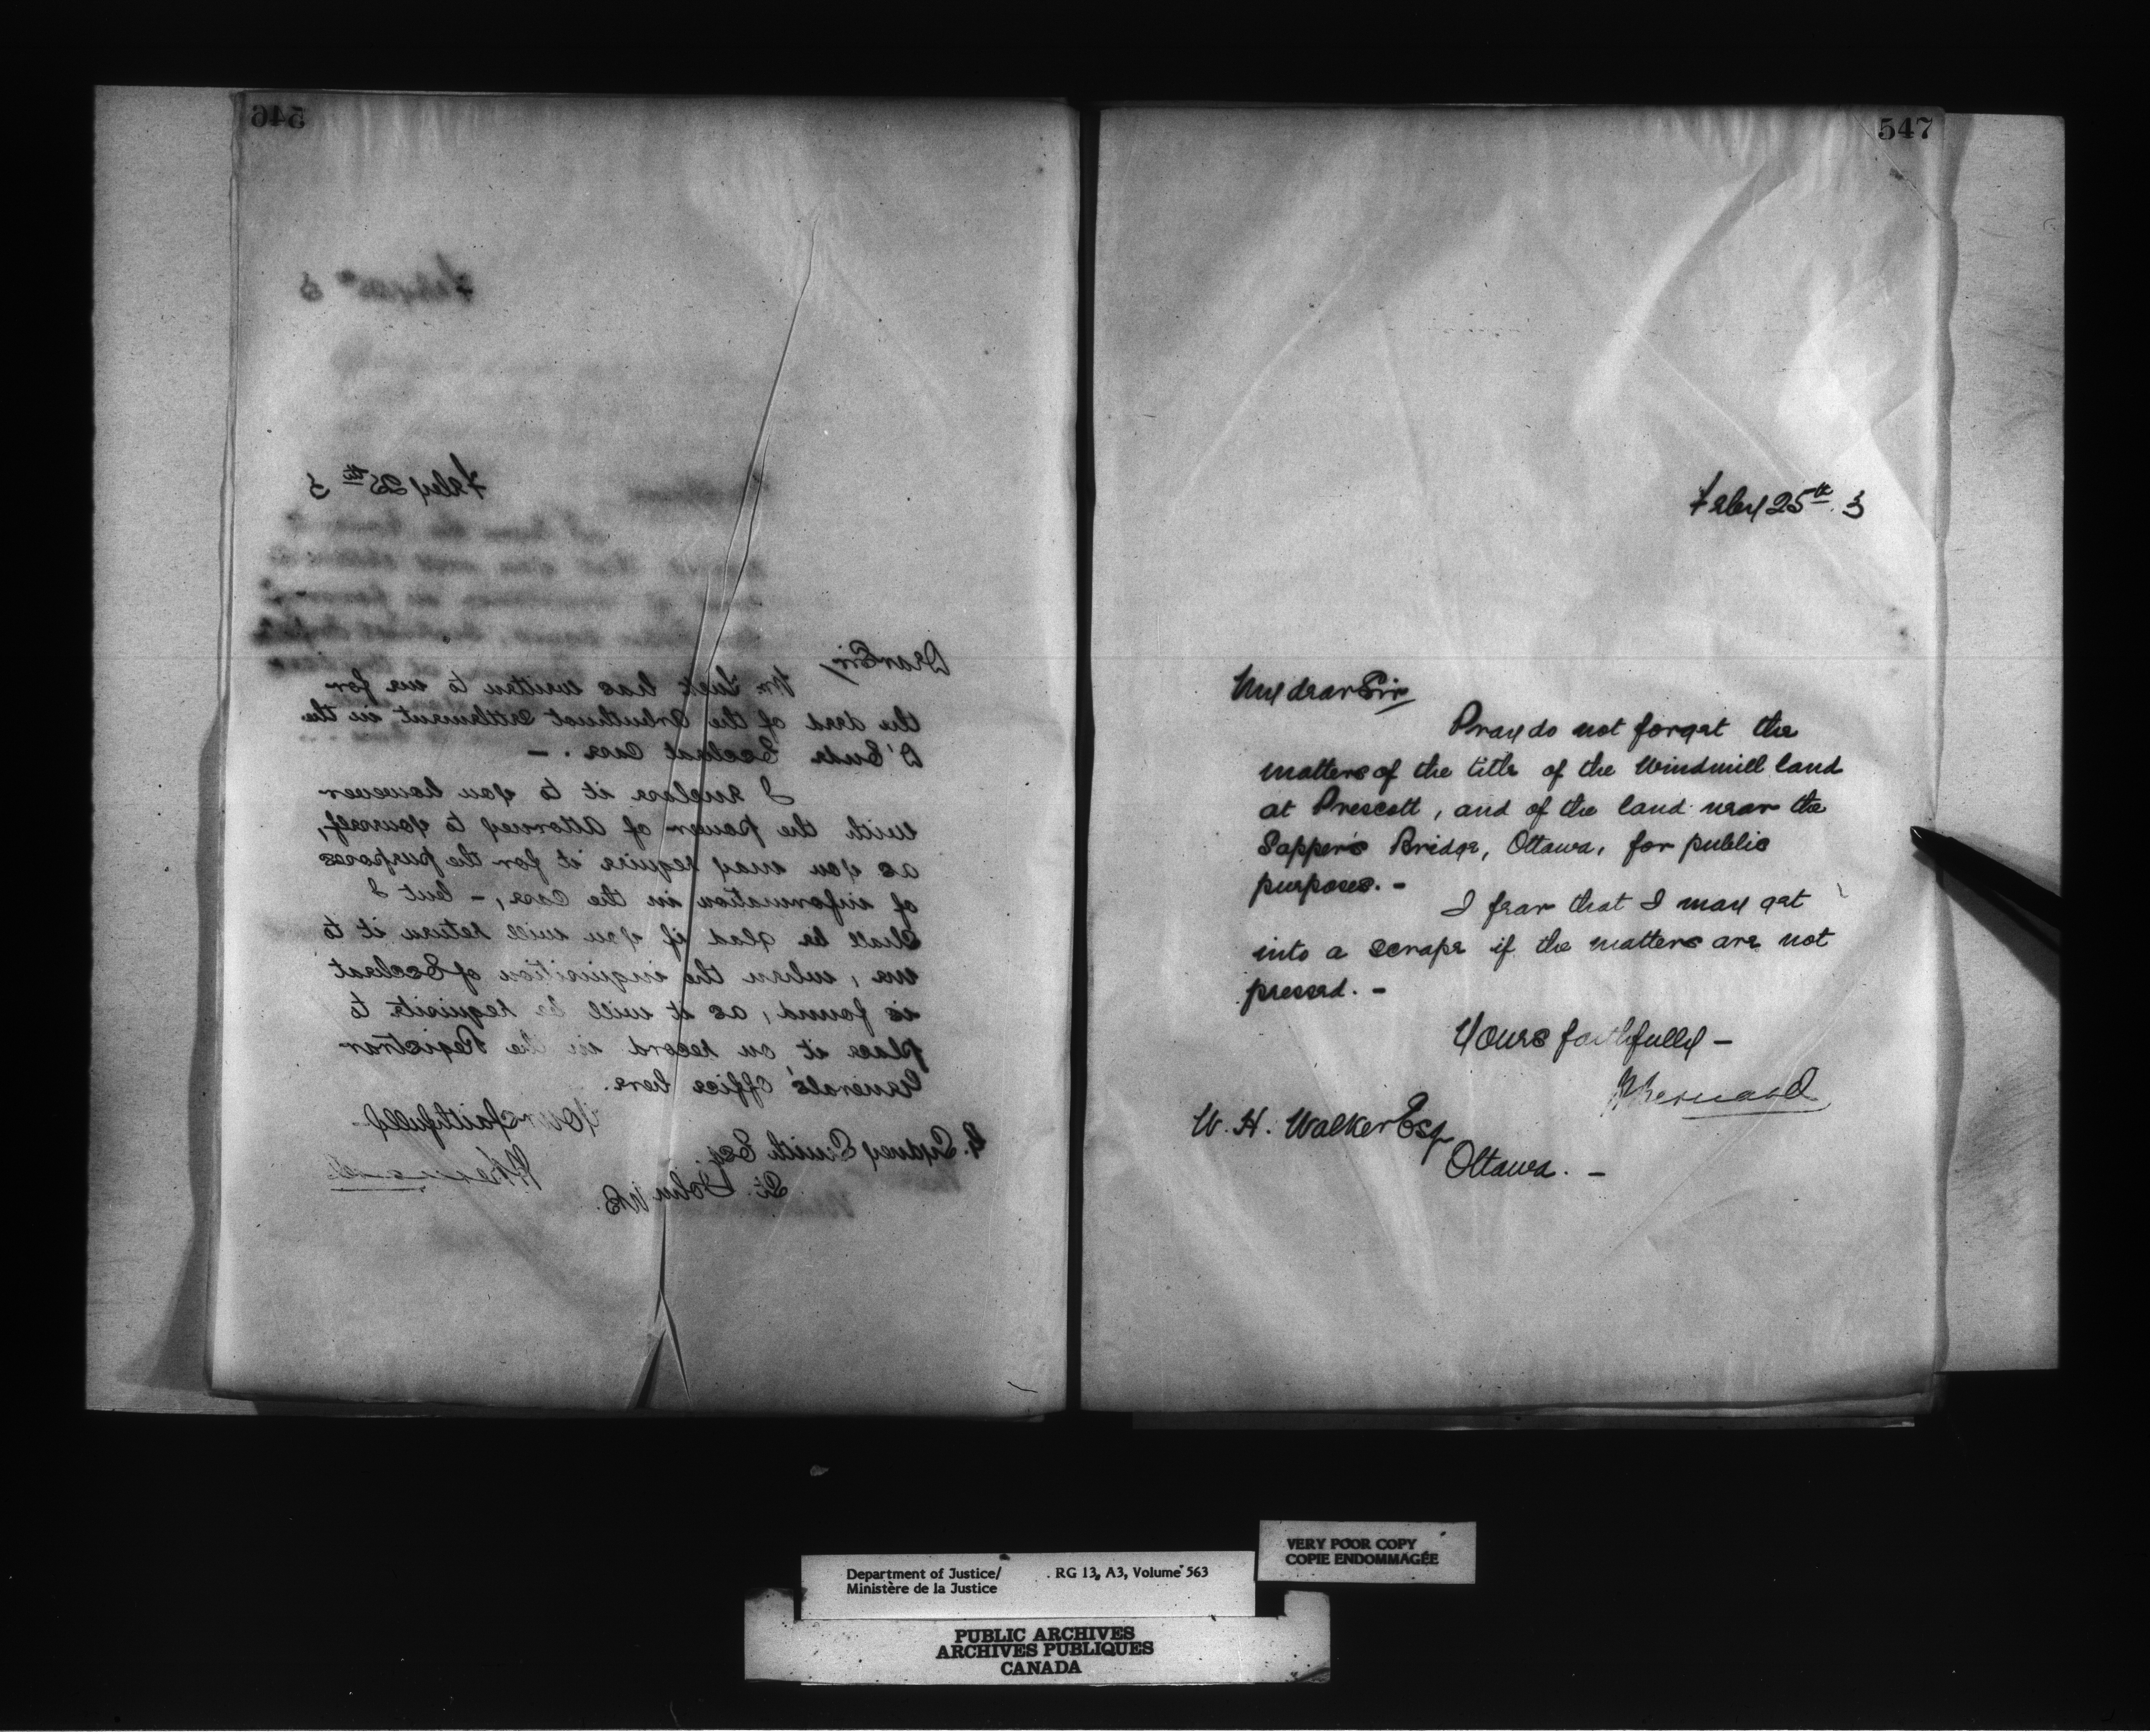 546
Feby 25th 3
Dear Sir
Mr. Tuck has written to me for
the deed of the Arbuthnot Settlement in the
O'Dude Escheat Case. —
I enclose it to you however
with the power of Attorney to yourself,
as you may require it for the purposes
of information in the case, — but I
shall be glad if you will return it to
me, when the inquisition of Escheat
is found, as it will be requisite to
place it on record in the Registrar
Generals' Office here.
Yours faithfully
H Bernard
G. Sydney Smith Esq.
St. John NB.
547
Feby 25th. 3
My dear Sir
Pray do not forget the
matters of the title of the Windmill land
at Prescott, and of the land near the
Sapper's Bridge, Ottawa, for public
purposes. —
I fear that I may get
into a scrape if the matters are not
pressed. —
Yours faithfully —
H Bernard
W. H. Walker Esq
Ottawa. —
VERY POOR COPY
COPIE ENDOMMAGÉE
Department of Justice/ RG 13, A3, Volume 563
Ministère de la Justice
PUBLIC ARCHIVES
ARCHIVES PUBLIQUES
CANADA